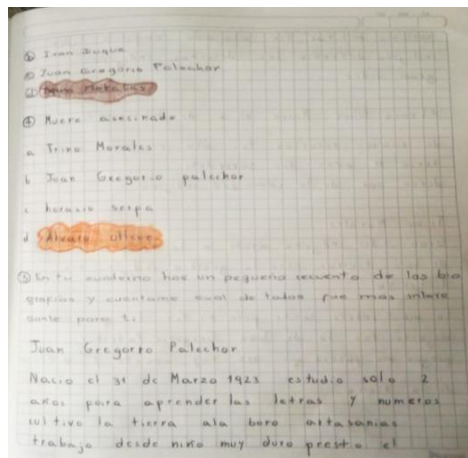 b Ivan Duque
c Juan Gregorio Palechor
d
④ Muere asesinado
a Trino Morales
b Juan Gregorio palechor
c horasio serpa
d Alvaro ullcue
⑤ En tu cuaderno haz un pequeño recuento de las bio
grafias y cuentame cual de todas fue mas intere
sante para ti.
Juan Gregorio Palechor
Nacio el 31 de Marzo 1923 estudio solo 2
años para aprender las letras y numeros
cultivo la tierra ala boro artasanias
trabajo desde niño muy duro presto el